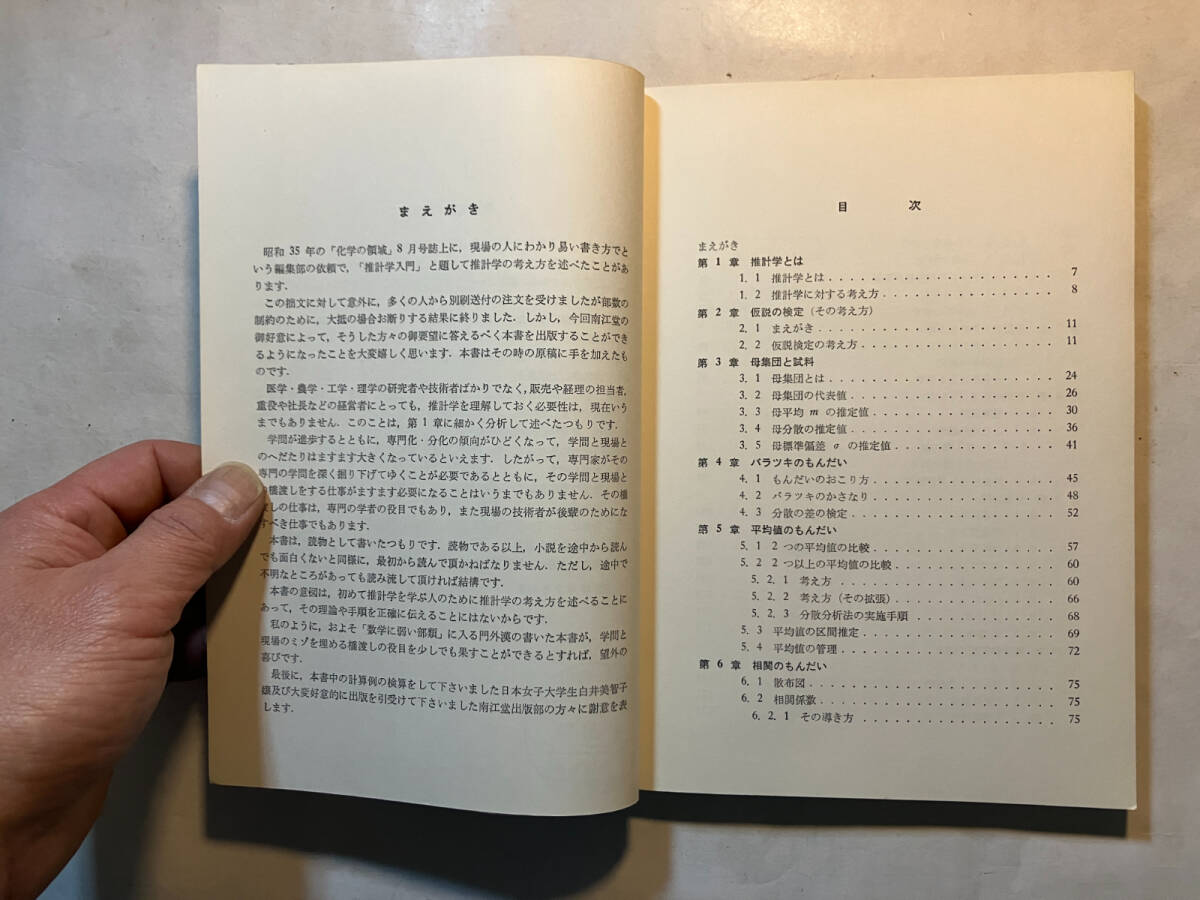 まえがき
昭和 35 年の「化学の領域」8 月号誌上に，現場の人にわかり易い書き方でと
いう編集部の依頼で，「推計学入門」と題して推計学の考え方を述べたことがあ
ります．
この拙文に対して意外に，多くの人から別刷送付の注文を受けましたが部数の
制約のために，大抵の場合お断りする結果に終りました．しかし，今回南江堂の
御好意によって，そうした方々の御要望に答えるべく本書を出版することができ
るようになったことを大変嬉しく思います．本書はその時の原稿に手を加えたも
のです．
医学・農学・工学・理学の研究者や技術者ばかりでなく，販売や経理の担当者，
重役や社長などの経営者にとっても，推計学を理解しておく必要性は，現在いう
までもありません．このことは，第 1 章に細かく分析して述べたつもりです．
学問が進歩するとともに，専門化・分化の傾向がひどくなって，学問と現場と
のへだたりはますます大きくなっているといえます．したがって，専門家がその
専門の学問を深く掘り下げてゆくことが必要であるとともに，その学問と現場と
橋渡しをする仕事がますます必要になることはいうまでもありません．その橋
しの仕事は，専門の学者の役目でもあり，また現場の技術者が後輩のためにな
すべき仕事でもあります．
本書は，読物として書いたつもりです．読物である以上，小説を途中から読ん
でも面白くないと同様に，最初から読んで頂かねばなりません．ただし，途中で
不明なところがあっても読み流して頂ければ結構です．
本書の意図は，初めて推計学を学ぶ人のために推計学の考え方を述べることに
あって，その理論や手順を正確に伝えることにはないからです．
私のように，およそ「数学に弱い部類」に入る門外漢の書いた本書が，学問と
現場のミゾを埋める橋渡しの役目を少しでも果すことができるとすれば，望外の
喜びです．
最後に，本書中の計算例の検算をして下さいました日本女子大学生白井美智子
嬢及び大変好意的に出版を引受けて下さいました南江堂出版部の方々に謝意を表
します．
目 次
まえがき
第 1 章 推計学とは
1. 1 推計学とは . . . . . . . . . . . . . . . . . . . . 7
1. 2 推計学に対する考え方 . . . . . . . . . . . . . . . 8
第 2 章 仮説の検定（その考え方）
2. 1 まえがき . . . . . . . . . . . . . . . . . . . . 11
2. 2 仮説検定の考え方 . . . . . . . . . . . . . . . . 11
第 3 章 母集団と試料
3. 1 母集団とは . . . . . . . . . . . . . . . . . . . 24
3. 2 母集団の代表値 . . . . . . . . . . . . . . . . . 26
3. 3 母平均 m の推定値 . . . . . . . . . . . . . . . 30
3. 4 母分散の推定値 . . . . . . . . . . . . . . . . . 36
3. 5 母標準偏差 σ の推定値 . . . . . . . . . . . . . 41
第 4 章 バラツキのもんだい
4. 1 もんだいのおこり方 . . . . . . . . . . . . . . . 45
4. 2 バラツキのかさなり . . . . . . . . . . . . . . . 48
4. 3 分散の差の検定 . . . . . . . . . . . . . . . . . 52
第 5 章 平均値のもんだい
5. 1 2 つの平均値の比較 . . . . . . . . . . . . . . . 57
5. 2 2 つ以上の平均値の比較 . . . . . . . . . . . . . 60
5. 2. 1 考え方 . . . . . . . . . . . . . . . . . . . 60
5. 2. 2 考え方（その拡張） . . . . . . . . . . . . . 66
5. 2. 3 分散分析法の実施手順 . . . . . . . . . . . . 68
5. 3 平均値の区間推定 . . . . . . . . . . . . . . . . 69
5. 4 平均値の管理 . . . . . . . . . . . . . . . . . . 72
第 6 章 相関のもんだい
6. 1 散布図 . . . . . . . . . . . . . . . . . . . . . 75
6. 2 相関係数 . . . . . . . . . . . . . . . . . . . . 75
6. 2. 1 その導き方 . . . . . . . . . . . . . . . . . 75